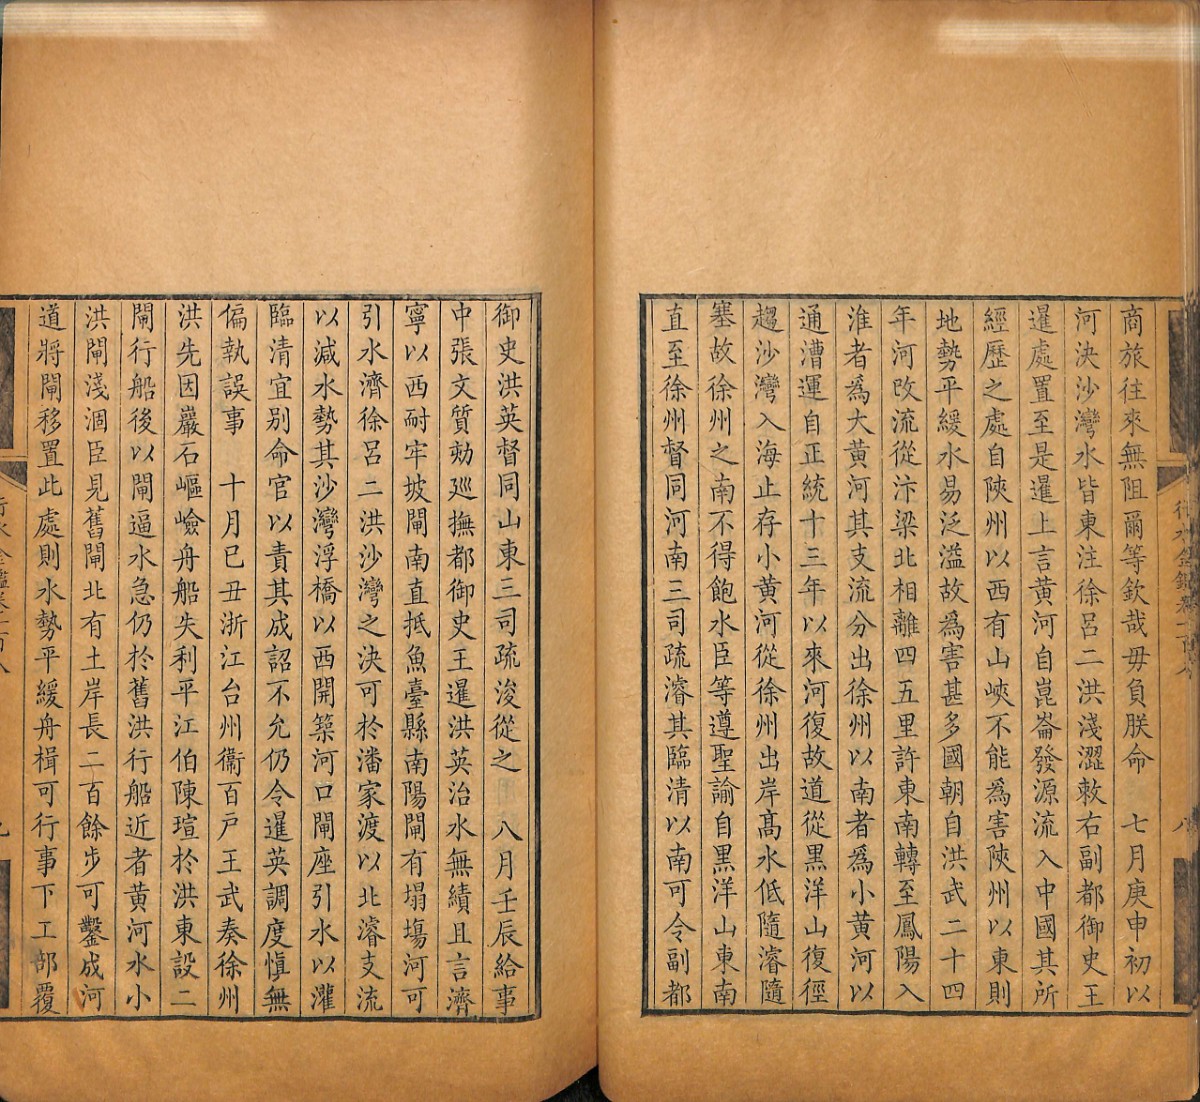 商旅往來無阻爾等欽哉毋負朕命　七月庚申初以
河決沙灣水皆東注徐呂二洪淺澀敕右副都御史王
暹處置至是暹上言黃河自崑崙發源流入中國其所
經歷之處自陝州以西有山峽不能爲害陝州以東則
地勢平緩水易泛溢故爲害甚多國朝自洪武二十四
年河改流從汴梁北相離四五里許東南轉至鳳陽入
淮者爲大黃河其支流分出徐州以南者爲小黃河以
通漕運自正統十三年以來河復故道從黑洋山復徑
趨沙灣入海止存小黃河從徐州出岸高水低隨濬隨
塞故徐州之南不得飽水臣等遵聖諭自黑洋山東南
直至徐州督同河南三司疏濬其臨清以南可令副都
御史洪英督同山東三司疏浚從之　八月壬辰給事
中張文質劾巡撫都御史王暹洪英治水無績且言濟
寧以西耐牢坡閘南直抵魚臺縣南陽閘有塌塲河可
引水濟徐呂二洪沙灣之決可於潘家渡以北濬支流
以減水勢其沙灣浮橋以西開築河口閘座引水以灌
臨清宜別命官以責其成詔不允仍令暹英調度愼無
偏執誤事　十月己丑浙江台州衞百戶王武奏徐州
洪先因巖石嶇嶮舟船失利平江伯陳瑄於洪東設二
閘行船後以閘逼水急仍於舊洪行船近者黃河水小
洪閘淺涸臣見舊閘北有土岸長二百餘步可鑿成河
道將閘移置此處則水勢平緩舟楫可行事下工部覆